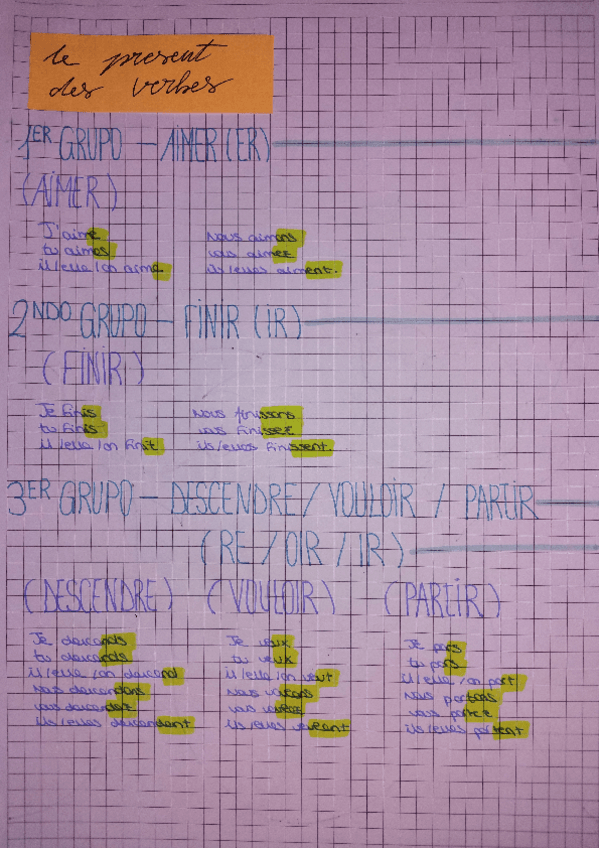 le present
des verbes
1ER GRUPO - AIMER (ER)
(AIMER)
J'aime
tu aimes
il/ella/on aime
Nous aimons
vous aimez
ils/ellas aiment.
2NDO GRUPO - FINIR (IR)
(FINIR)
Je finis
tu finis
il/ella/on finit
Nous finissons
vous finissez
ils/ellas finissent.
3ER GRUPO - DESCENDRE / VOULOIR / PARTIR
(RE / OIR / IR)
(DESCENDRE) (VOULOIR) (PARTIR)
Je descends
tu descends
il/ella/on descend
Nous descendons
vous descendez
ils/ellas descendent
Je veux
tu veux
il/ella/on veut
Nous
vous
ils/ellas veulent
Je pars
tu pars
il/ella/on part
Nous partons
vous partez
ils/ellas partent